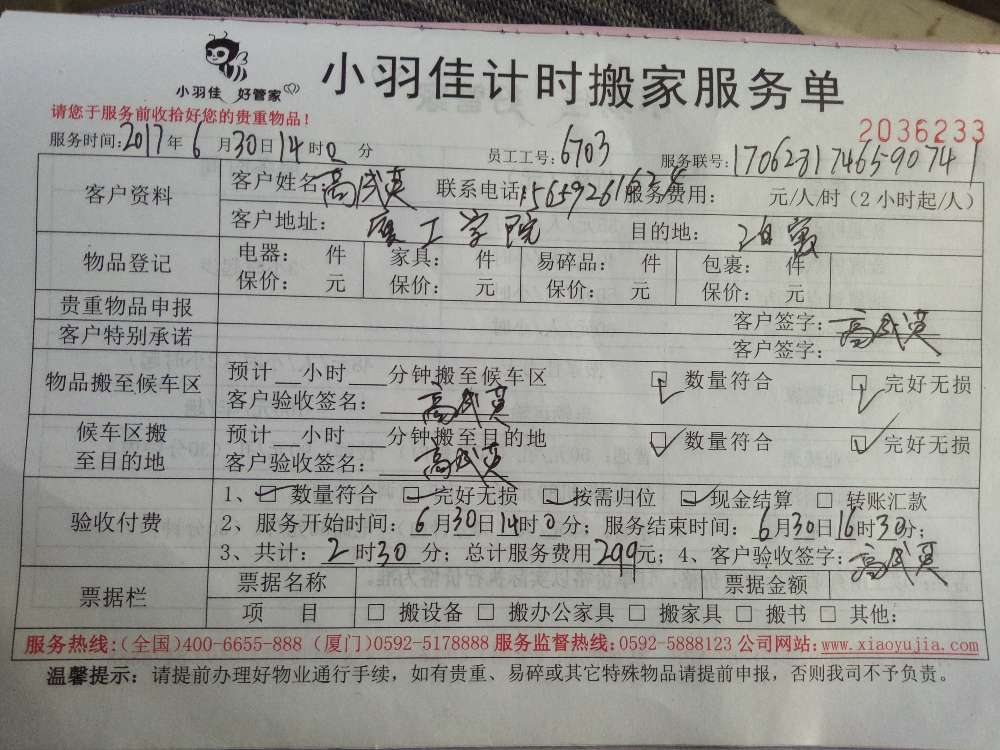 小羽佳 好管家
小羽佳计时搬家服务单
请您于服务前收拾好您的贵重物品！
2036233
服务时间:2017年6月30日14时0分 员工工号:6703 服务联号:
客户资料 客户姓名: 联系电话: 服务费用: 元/人/时（2小时起/人）
客户地址: 厦工学院 目的地:
物品登记 电器: 件 家具: 件 易碎品: 件 包裹: 件
保价: 元 保价: 元 保价: 元 保价: 元
贵重物品申报 客户签字:
客户特别承诺 客户签字:
物品搬至候车区 预计__小时__分钟搬至候车区 数量符合 完好无损
客户验收签名:
候车区搬至目的地 预计__小时__分钟搬至目的地 数量符合 完好无损
客户验收签名:
验收付费 1、数量符合 完好无损 按需归位 现金结算 转账汇款
2、服务开始时间: 6月30日14时0分; 服务结束时间: 6月30日16时30分;
3、共计: 2时30分; 总计服务费用299元; 4、客户验收签字:
票据栏 票据名称 票据金额
项目 □ 搬设备 □ 搬办公家具 □ 搬家具 □ 搬书 □ 其他:
服务热线:(全国)400-6655-888 (厦门)0592-5178888 服务监督热线:0592-5888123 公司网站:www.xiaoyujia.com
温馨提示: 请提前办理好物业通行手续，如有贵重、易碎或其它特殊物品请提前申报，否则我司不予负责。